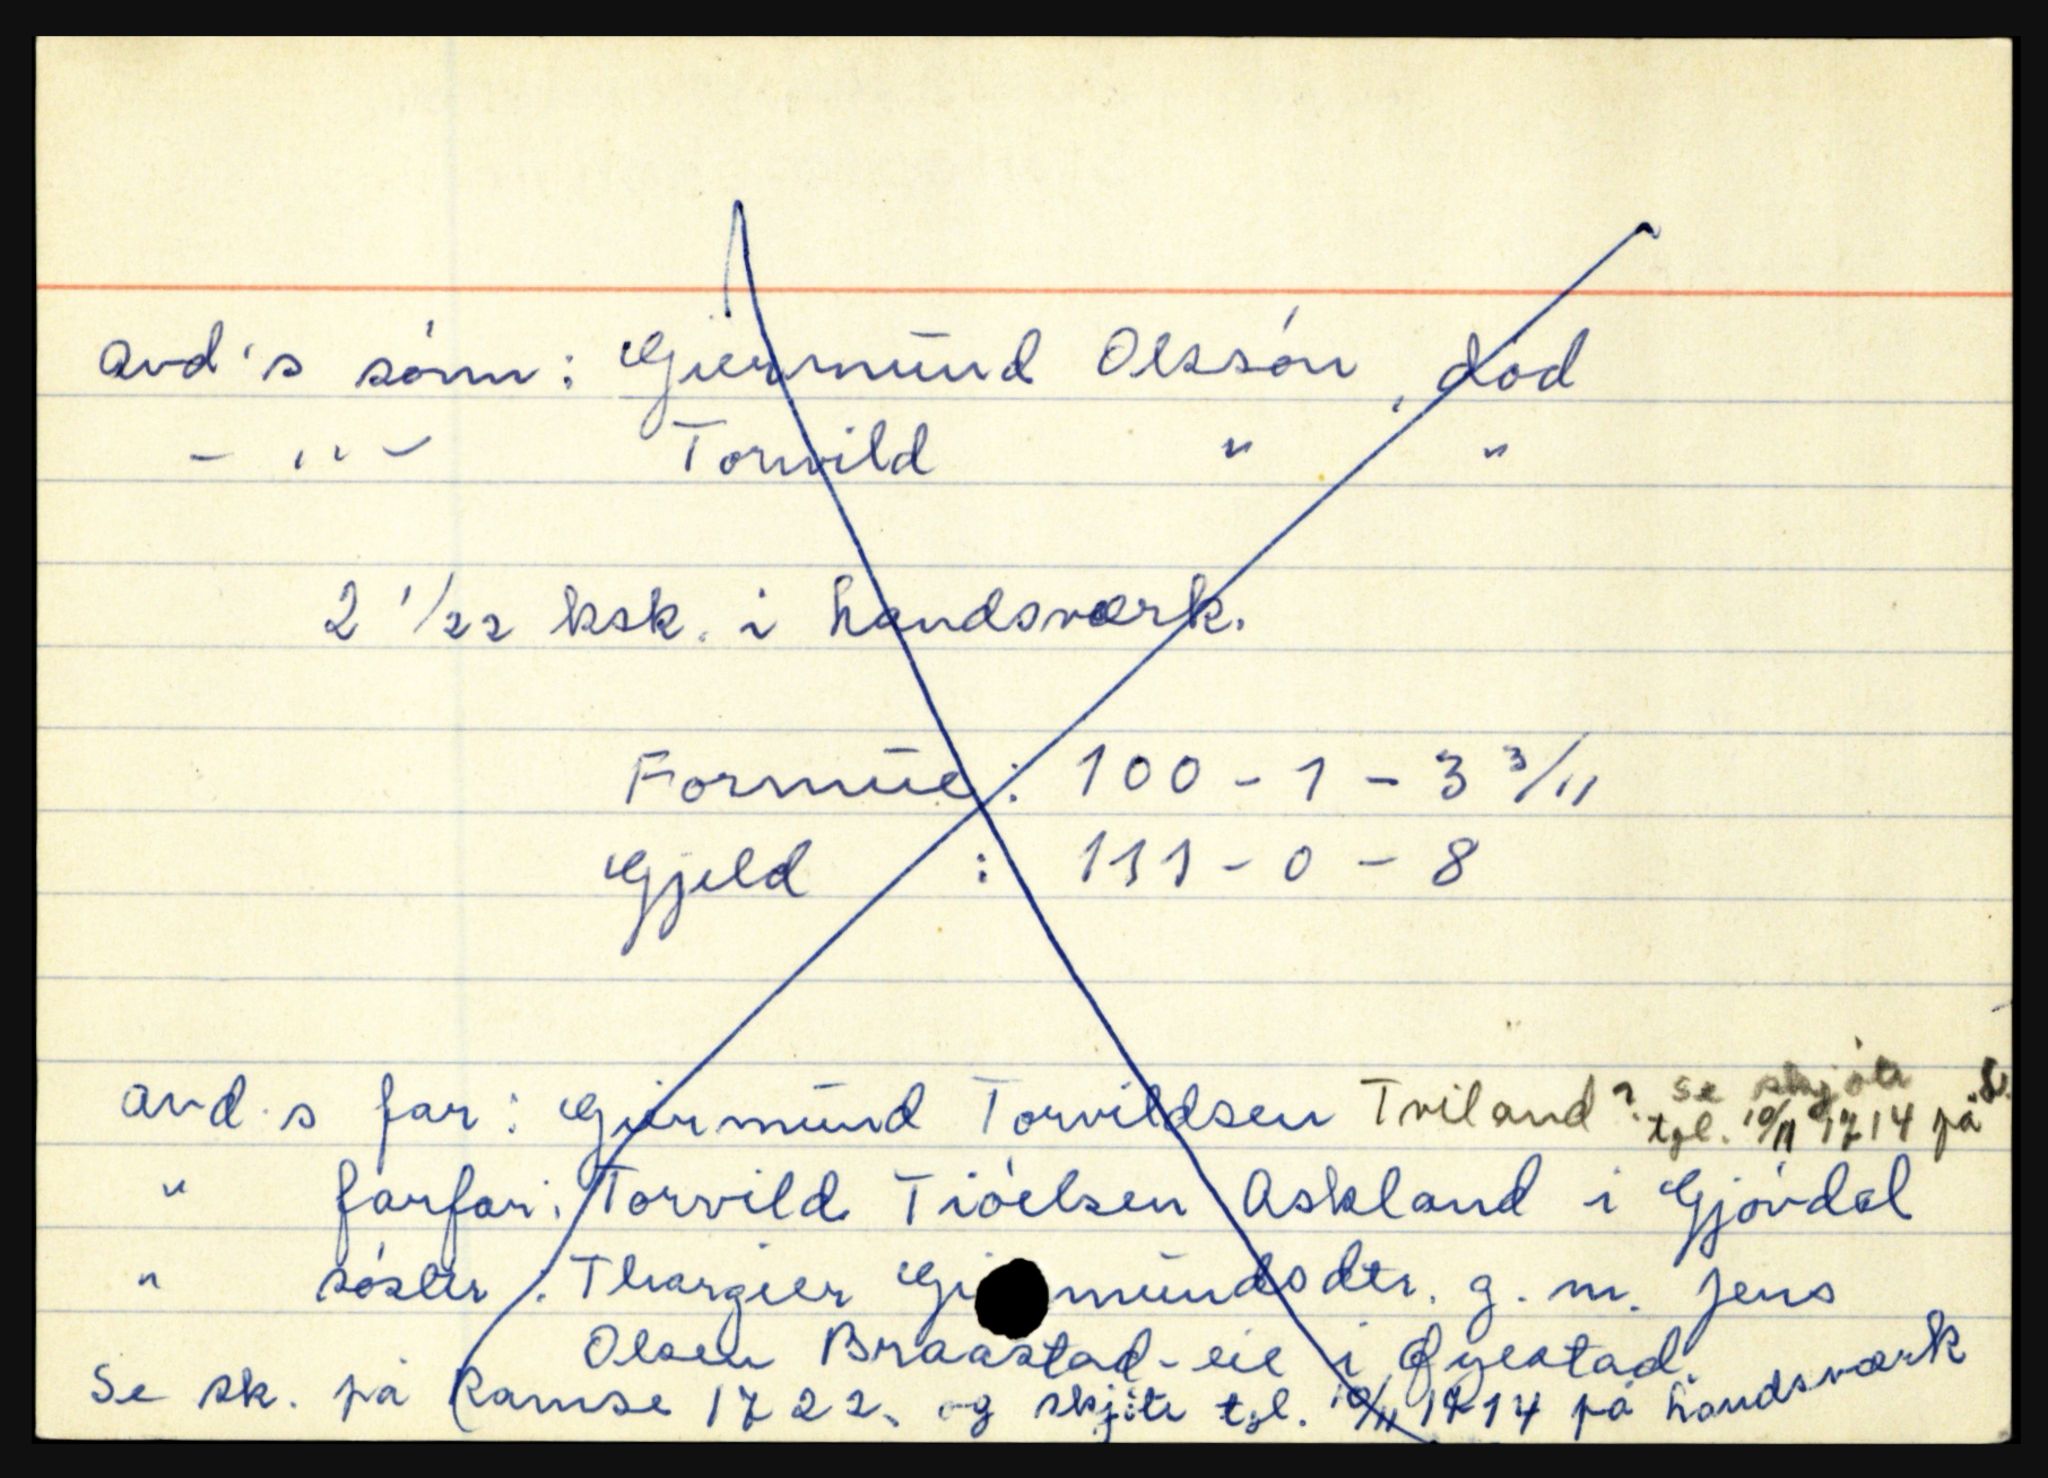 avd's sónn: Gjermund Olssón, dód
- " - Torvild " "
2 1/22 ksk. i Landsværk.
Formue: 100 - 1 - 3 3/11
Gjeld : 111 - 0 - 8
avd.s far: Gjermund Torvildsen Tviland? se skjóte
tgl. 10/11 1714 på
" farfar: Torvild Tióelsen Askland i Gjóvdal
" sóster: Thorgier Gj mundsdtr. g. m. Jens
Olsen Braastad-eie i Øyestad.
Se sk. på Ramse 1722. og skjóte tgl. 10/11 1714 på Landsværk